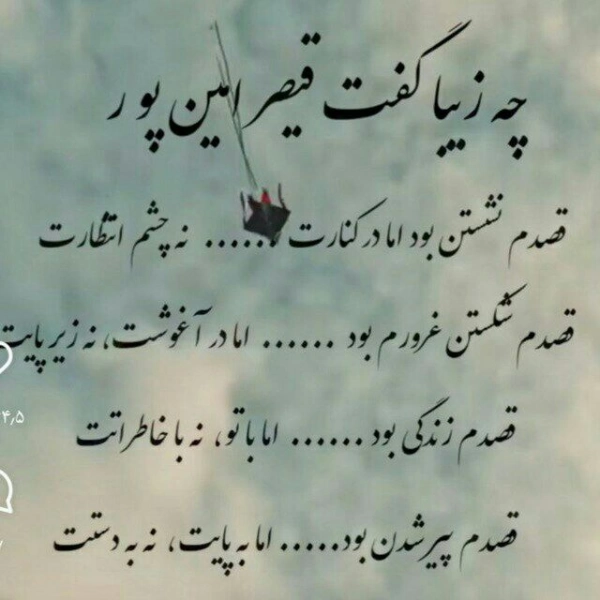 چه زیبا گفت قیصر امین پور
قصدم نشستن بود اما در کنارت ...... نه چشم انتظارت
قصدم شکستن غرورم بود ...... اما در آغوشت، نه زیر پایت
قصدم زندگی بود ...... اما با تو، نه با خاطراتت
قصدم پیر شدن بود..... اما به پایت، نه به دستت
۴٫۵